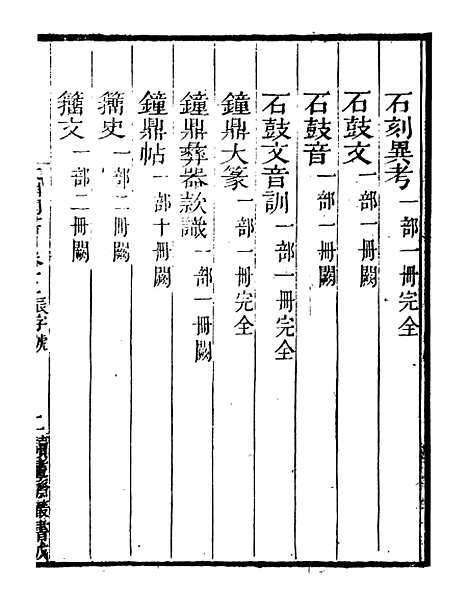 石刻異考一部一冊完全
石鼓文一部一冊闕
石鼓音一部一冊闕
石鼓文音訓一部一冊完全
鐘鼎大篆一部一冊完全
鐘鼎彝器款識一部一冊闕
鐘鼎帖一部十冊闕
籀史一部二冊闕
籀文一部二冊闕
辰字號
二
叢書